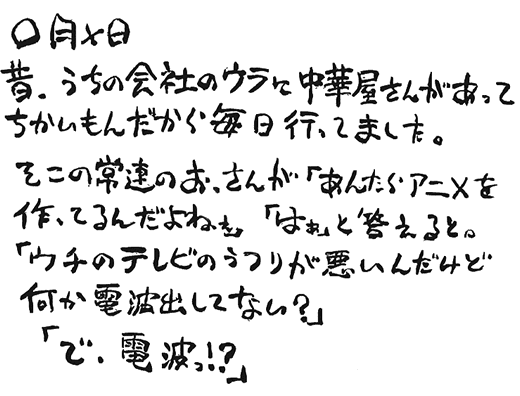 〇月×日
昔、うちの会社のウラに中華屋さんがあって
ちかいもんだから毎日行ってました。
そこの常連のおっさんが「あんたらアニメを
作ってるんだよねぇ」「はぁ」と答えると。
「ウチのテレビのうつりが悪いんだけど
何か電波出してない?」
「で、電波っ!?」